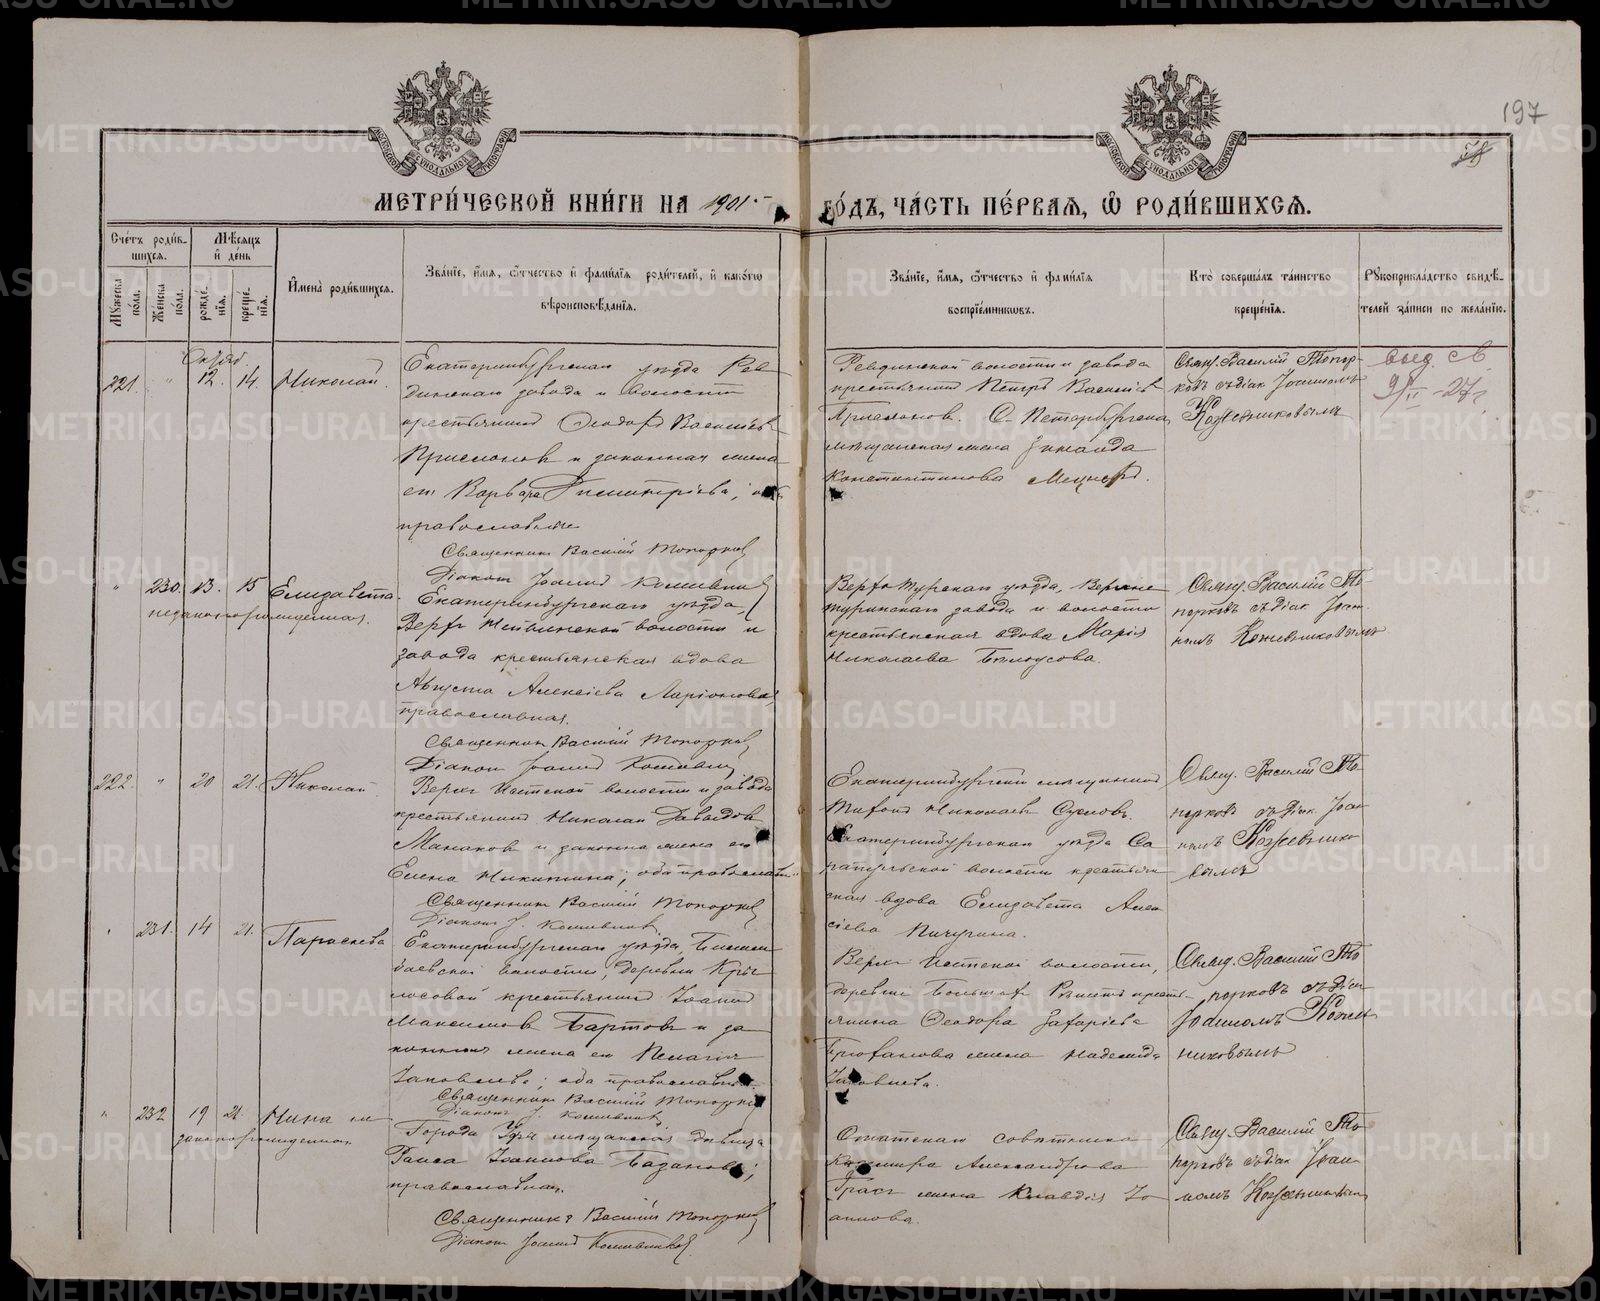 197
МЕТРИ́ЧЕСКОЙ КНИ́ГИ НА 1901 ГО́ДЪ, ЧА́СТЬ ПЕ́РВАЯ, Ѡ РОДИ́ВШИХСЯ.
Сче́тъ роди́в-
шихся.
Мѣ́сяцъ
и̂ де́нь
Мꙋ́жеска
по́ла.
Же́нска
по́ла.
рожде́-
нїя.
креще́-
нїя.
И̂мена̀ роди́вшихся.
Зва́нїе, и̂́мя, ѻ̂́тчество и̂ фами́лїя роди́телей, и̂ како́гѡ
вѣроисповѣ́данїя.
Зва́нїе, и̂́мя, ѻ̂́тчество и̂ фами́лїя
воспрїе́мникѡвъ.
Кто̀ соверша́лъ та́инство
креще́нїя.
Рꙋкоприкла́дство свидѣ́-
телей за́писи по жела́нїю.
Октяб.
221. " 12. 14. Николай
Екатеринбургскаго уѣзда Рев
динскаго завода и волости
крестьянинъ Ѳеодоръ Васильевъ
и законная жена
его Варвара Димитріева; оба
православные
Священникъ Василій Топорковъ
Діаконъ Іоаннъ Кожевниковъ
Ревдинской волости и завода
крестьянинъ Петръ Васильевъ
С. Петербургская
мѣщанская жена
Константинова
Свящ. Василій Топор-
ковъ съ діак. Іоанномъ
Кожевниковымъ
выд. св.
9/II - 27 г
" 230. 13. 15 Елизавета
незаконнорожденная.
Екатеринбургскаго уѣзда,
Верхъ Нейвинской волости и
завода крестьянская вдова
Августа Алексіева Ларіонова,
православная.
Священникъ Василій Топорковъ
Діаконъ Іоаннъ Кожевник
Верхотурскаго уѣзда, Верхне
туринскаго завода и волости
крестьянская вдова Марія
Николаева Бѣлоусова.
Свящ. Василій То-
порковъ съ діак. Іоан-
номъ Кожевниковымъ
222. " 20 21. Николай
Верхъ Исетской волости и завода
крестьянинъ Николай Давыдовъ
Манаковъ и законная жена его
Елена Никитина; оба православн
Священникъ Василій Топорковъ
Діаконъ І. Кожевников.
Екатеринбургскій мѣщанинъ
Николаевъ Сусловъ.
Екатеринбургскаго уѣзда Са
рапульской волости крестьян
ская вдова Елизавета Алек
сіева Пичугина.
Свящ. Василій То-
порковъ съ діак. Іоан
номъ Кожевнико
вымъ
" 231. 14 21. Параскева
Екатеринбургскаго уѣзда, Билим
баевской волости, деревни Кры
лосовой крестьянинъ Іоаннъ
Максимовъ Бартовъ и за
конная жена его Пелагія
Іаковлева; оба православные.
Священникъ Василій Топорковъ
Діаконъ І. Кожевников
Верхъ Исетской волости,
деревни Большихъ Рѣшетъ кресть-
янина Ѳеодора Захаріева
жена Надежда
Іаковлева.
Свящ. Василій То
порковъ съ діак.
Іоанномъ Кожев
никовымъ
" 232 19 21. Нина не
законнорожденная
Города Уфы мѣщанская дѣвица
Раиса Іоаннова Базанова;
православная.
Священникъ Василій Топорковъ
Діаконъ Іоаннъ Кожевников.
Статскаго совѣтника
Александрова
жена Клавдія Іо
аннова.
Свящ. Василій То-
порковъ съ діак. Іоан
номъ Кожевниковым